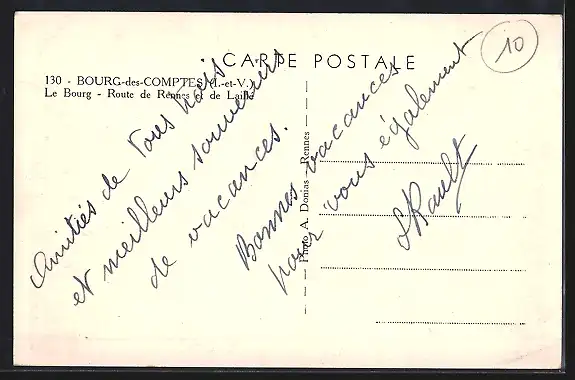 CARTE POSTALE
10
130 - BOURG-des-COMPTES (I.-et-V.)
Le Bourg - Route de Rennes et de Laillé
Amitiés de tous trois
et meilleurs souvenirs
de vacances.
Bonnes vacances
pour vous également
Rault
Photo A. Donias - Rennes